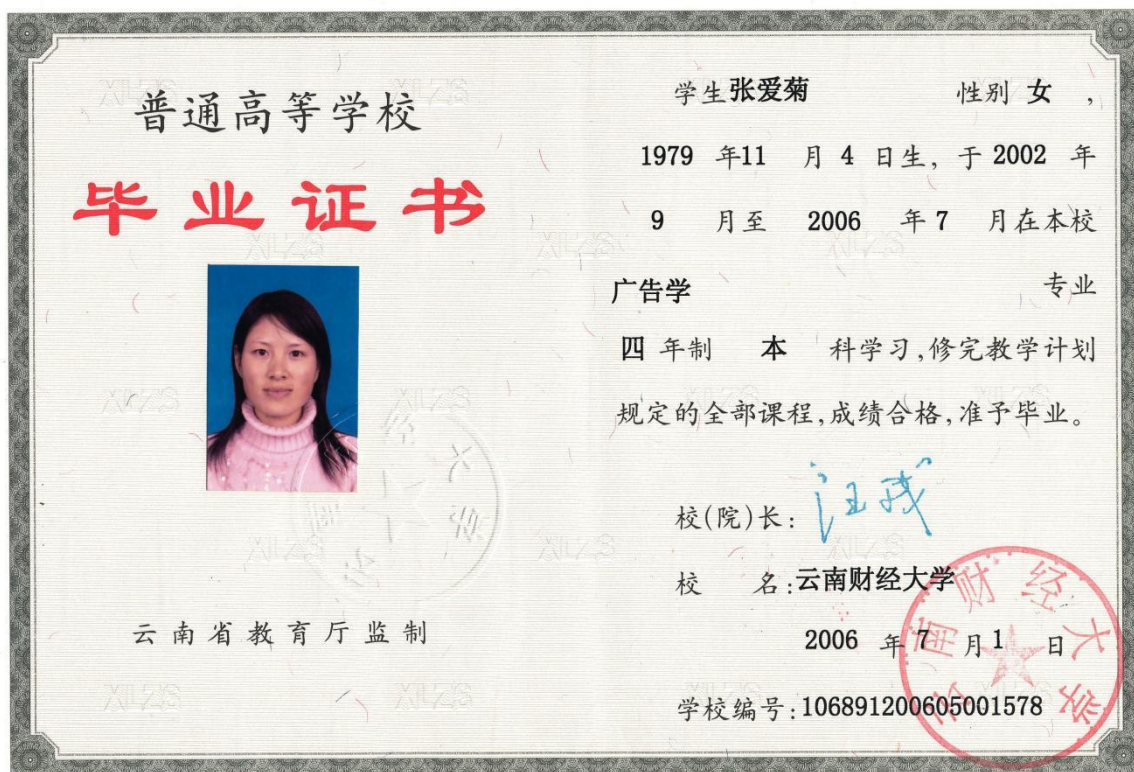 普通高等学校
毕业证书
云南省教育厅监制
学生张爱菊 性别 女 ,
1979 年11 月 4 日生, 于 2002 年
9 月至 2006 年 7 月在本校
广告学 专业
四 年制 本 科学习,修完教学计划
规定的全部课程,成绩合格,准予毕业。
校(院)长:
校 名:云南财经大学
2006 年 7 月 1 日
学校编号:106891200605001578
云南财经大学